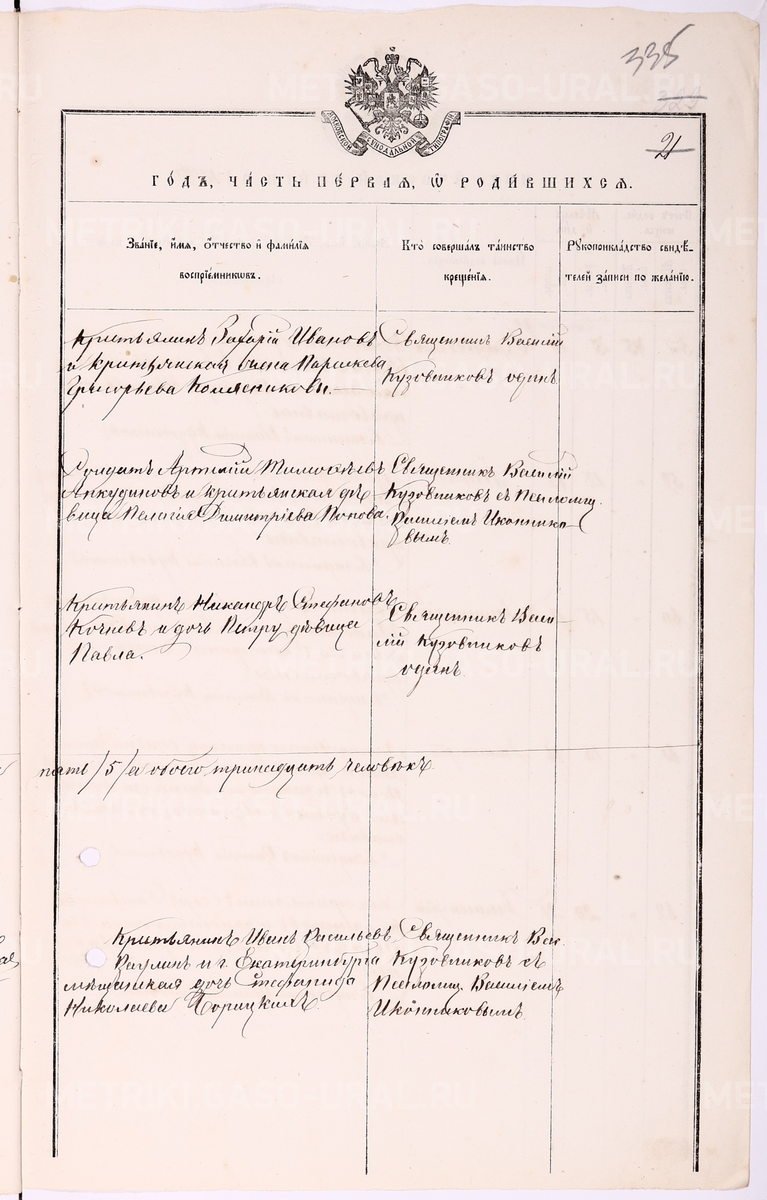 335
323
21
МОСКОВСКОЙ СѴНОДАЛЬНОЙ ТИПОГРАФІИ
ГО́ДЪ, ЧА́СТЬ ПЕ́РВАЯ, Ѽ РОДИ́ВШИХСЯ.
Зва́нїе, и҆́мя, ѻ҆́тчество и҆ фами́лїя
воспрїе́мникѡвъ.
Кто̀ соверша́лъ та́инство
креще́нїя.
Рꙋкоприкла́дство свидѣ́-
телей за́писи по жела́нїю.
Крестьянинъ Захарій Ивановъ
и крестьянская жена Параскева
Григорьева Колясниковы.
Священникъ Василій
Кузовниковъ одинъ
Солдатъ Артемій Тимофѣевъ
Анкудиновъ и крестьянская дѣ-
вица Пелагія Димитріева Попова.
Священникъ Василій
Кузовниковъ съ Псаломщ.
Василіемъ Иконнико-
вымъ.
Крестьянинъ Никандръ Стефановъ
Кочневъ и дочь дѣвица
Павла.
Священникъ Васи-
лій Кузовниковъ
одинъ
пять /5/ а обоего тринадцать человѣкъ
Крестьянинъ Иванъ Васильевъ
и г. Екатеринбурга
мѣщанская дочь Стефанида
Николаева
Священникъ Вас.
Кузовниковъ съ
Псаломщ. Василіемъ
Иконниковымъ.
METRIKI.GASO-URAL.RU